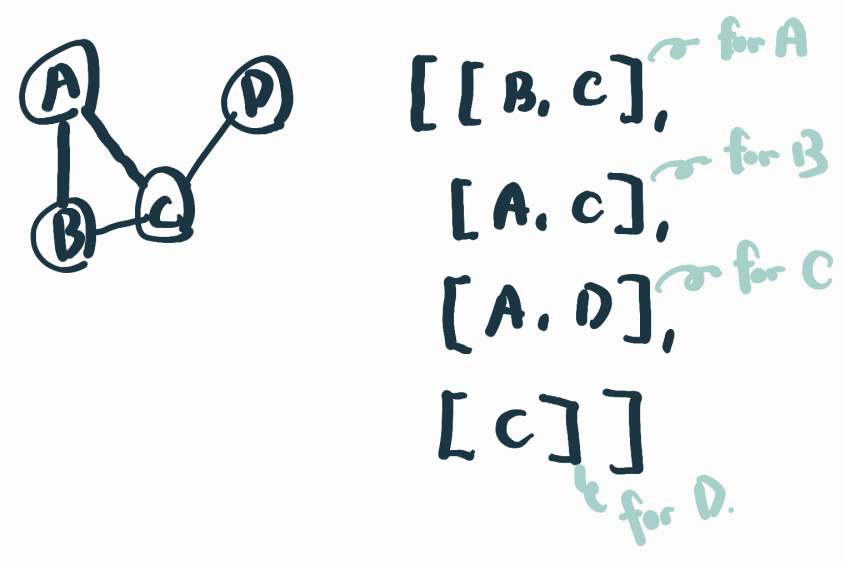 A
D
B
C
[ [ B, C ],
for A
[ A, C ],
for B
[ A, D ],
for C
[ C ] ]
for D.